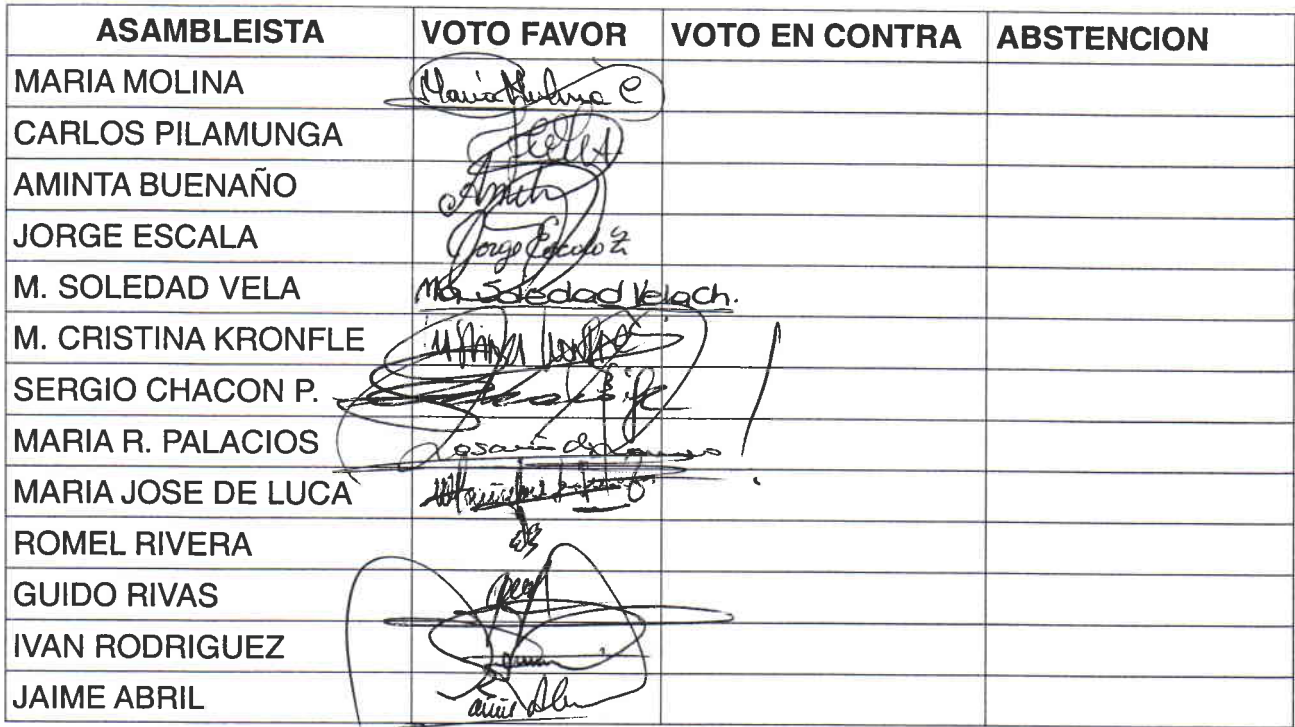 ASAMBLEISTA VOTO FAVOR VOTO EN CONTRA ABSTENCION
MARIA MOLINA María Molina C
CARLOS PILAMUNGA
AMINTA BUENAÑO
JORGE ESCALA Jorge Escala Z
M. SOLEDAD VELA Ma. Soledad Vela ch.
M. CRISTINA KRONFLE
SERGIO CHACON P.
MARIA R. PALACIOS
MARIA JOSE DE LUCA
ROMEL RIVERA
GUIDO RIVAS
IVAN RODRIGUEZ
JAIME ABRIL